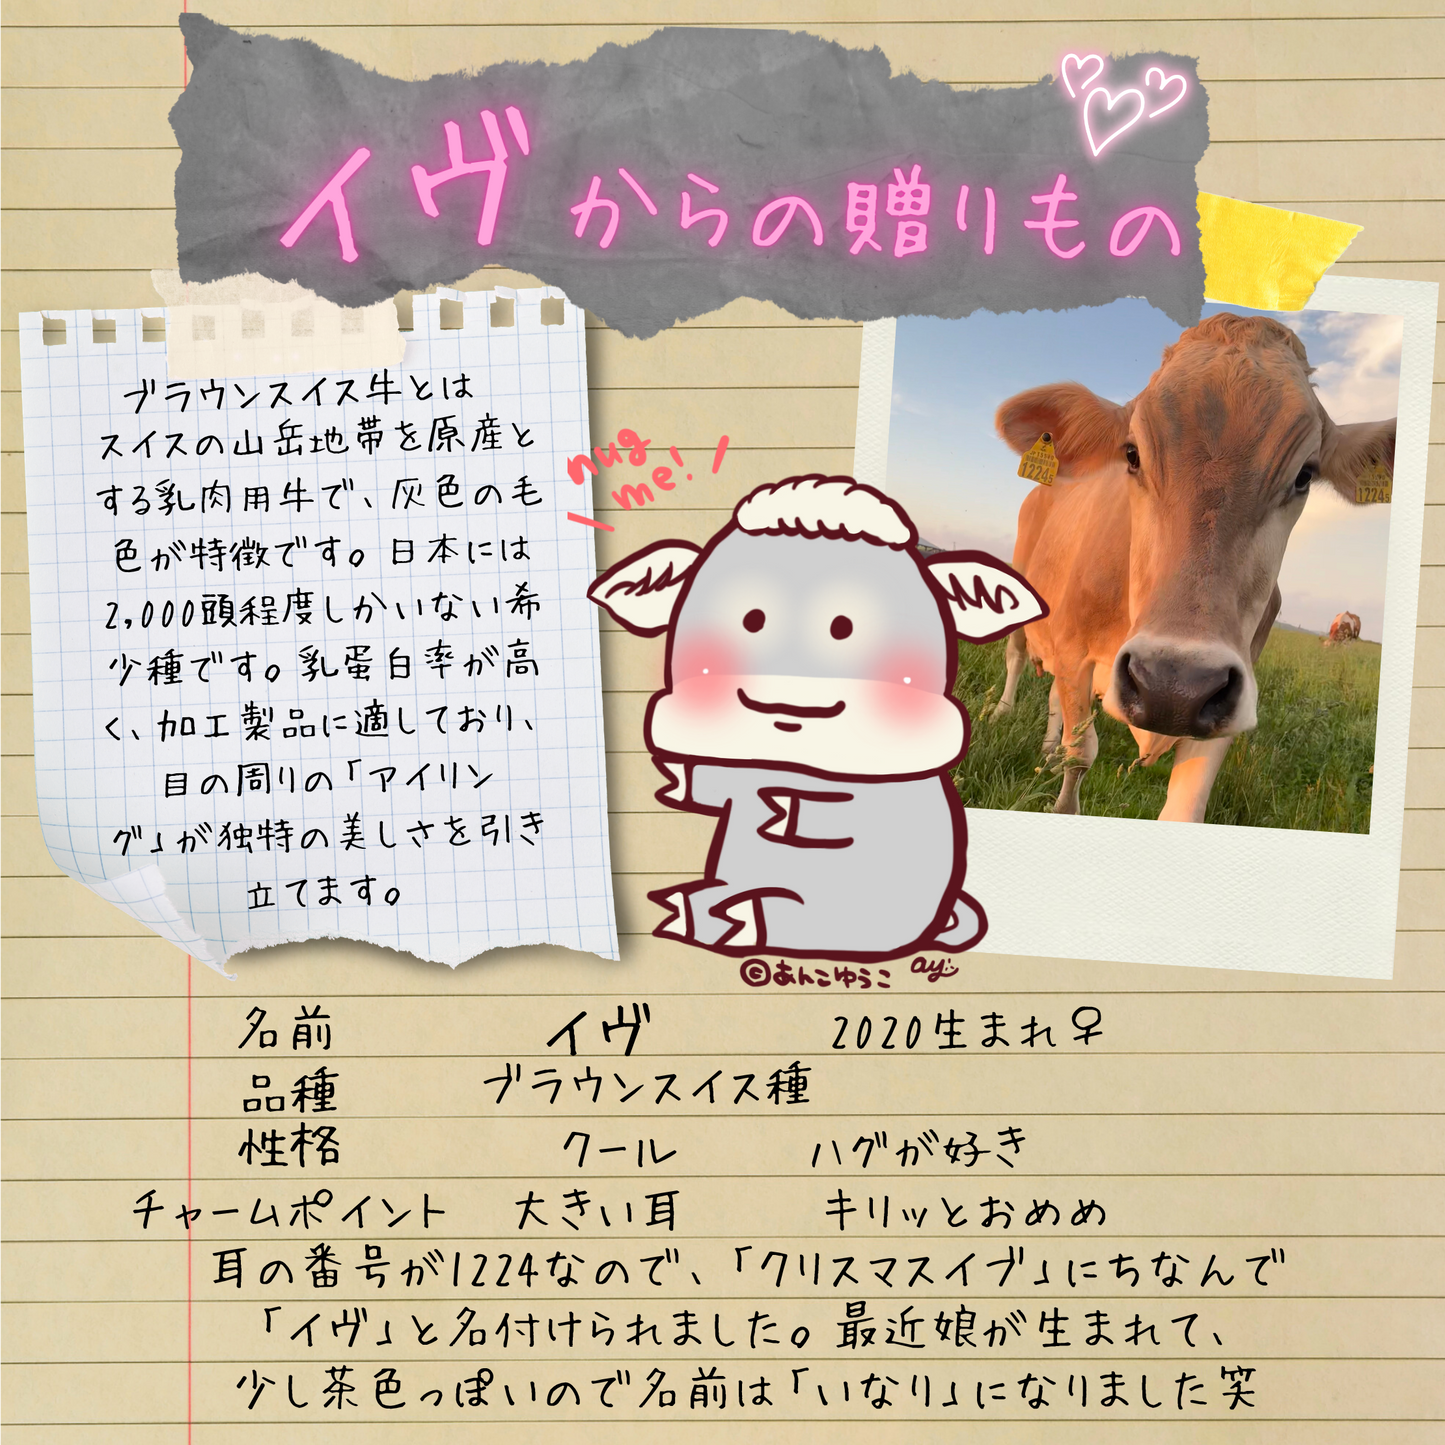 イヴからの贈りもの
ブラウンスイス牛とは
スイスの山岳地帯を原産と
する乳肉用牛で、灰色の毛
色が特徴です。日本には
2,000頭程度しかいない希
少種です。乳蛋白率が高
く、加工製品に適しており、
目の周りの「アイリン
グ」が独特の美しさを引き
立てます。
hug
me!
1224
1224
©あんこゆうこ ay
名前 イヴ 2020生まれ♀
品種 ブラウンスイス種
性格 クール ハグが好き
チャームポイント 大きい耳 キリッとおめめ
耳の番号が1224なので、「クリスマスイブ」にちなんで
「イヴ」と名付けられました。最近娘が生まれて、
少し茶色っぽいので名前は「いなり」になりました笑